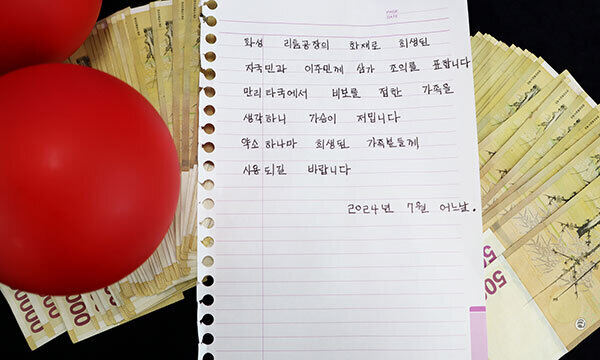 PAGE
DATE
화성 리튬공장의 화재로 희생된
자국민과 이주민께 삼가 조의를 표합니다
만리타국에서 비보를 접한 가족을
생각하니 가슴이 저밉니다
약소하나마 희생된 가족분들께
사용되길 바랍니다
2024년 7월 어느날.